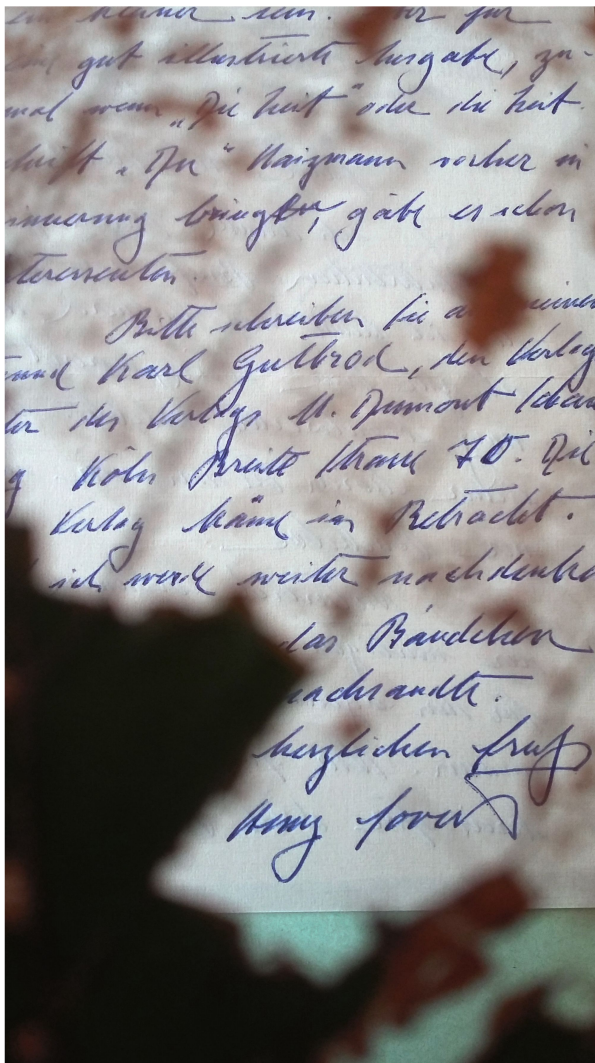 sein. für
gut illustrierte Ausgabe, zu-
mal wenn „Die Zeit" oder die Zeit
schrift „Du" Haizmann vorher in
innerung bringen, gäbe es schon
teressenten
Bitte schreiben Sie meinen
Karl Gutbrod, den Verlag
ter des Verlags M. Dumont Schau
Köln Breite Strasse 70. Die
Verlag käme in Betracht.
ich werde weiter nachdenken
das Bändchen
nachsandte.
herzlichen Gruß